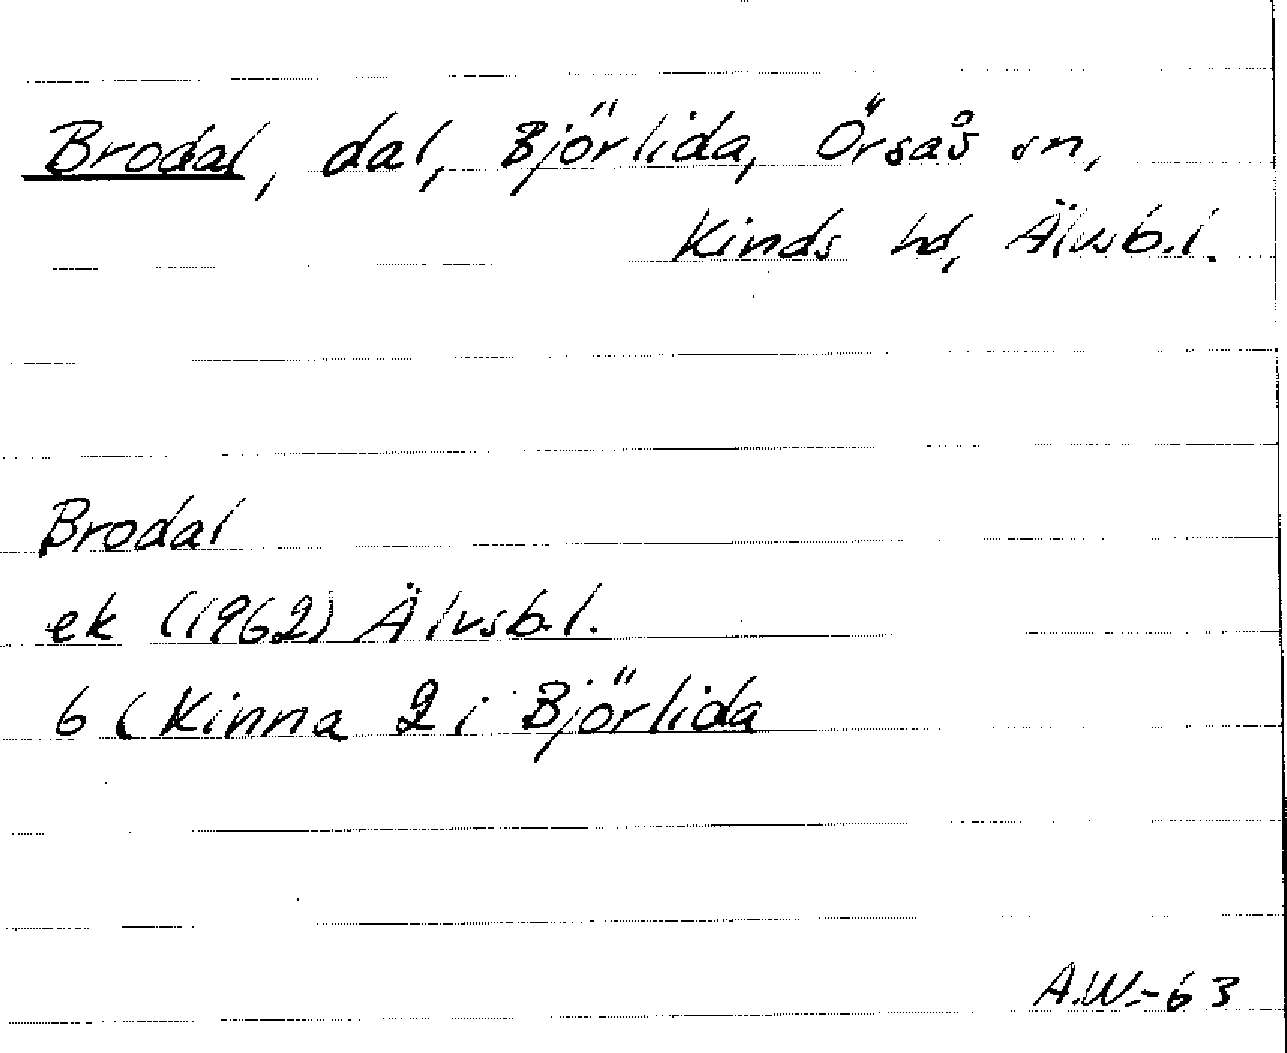 Brodal, dal, Björlida, Örsås sn,
Kinds hd, Älvsb.l.
Brodal
ek (1962) Älvsb.l.
6 (Kinna 2 i Björlida
A.W.-63